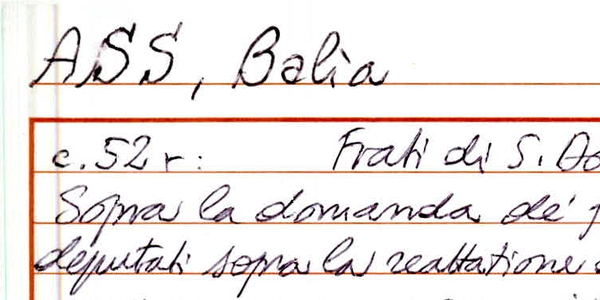 ASS, Balia
c. 52 r: Frati di S. Do
Sopra la domanda de'
deputati sopra la reattatione